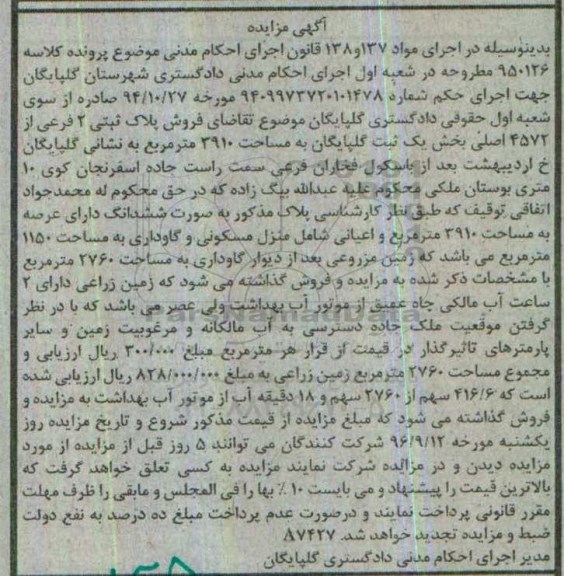 آگهی مزایده
بدینوسیله در اجرای مواد ۱۳۷و۱۳۸ قانون اجرای احکام مدنی موضوع پرونده کلاسه
۹۵۰۱۲۶ مطروحه در شعبه اول اجرای احکام مدنی دادگستری شهرستان گلپایگان
جهت اجرای حکم شماره ۹۴۰۹۹۷۳۷۲۰۱۰۱۴۷۸ مورخه ۹۴/۱۰/۲۷ صادره از سوی
شعبه اول حقوقی دادگستری گلپایگان موضوع تقاضای فروش پلاک ثبتی ۲ فرعی از
۴۵۷۲ اصلی بخش یک ثبت گلپایگان به مساحت ۳۹۱۰ مترمربع به نشانی گلپایگان
خ اردیبهشت بعد از باسکول فخاران فرعی سمت راست جاده اسفرنجان کوی ۱۰
متری بوستان ملکی محکوم علیه عبدالله بیگ زاده که در حق محکوم له محمدجواد
اتفاقی توقیف که طبق نظر کارشناسی پلاک مذکور به صورت ششدانگ دارای عرصه
به مساحت ۳۹۱۰ مترمربع و اعیانی شامل منزل مسکونی و گاوداری به مساحت ۱۱۵۰
مترمربع می باشد که زمین مزروعی بعد از دیوار گاوداری به مساحت ۲۷۶۰ مترمربع
با مشخصات ذکر شده به مزایده و فروش گذاشته می شود که زمین زراعی دارای ۲
ساعت آب مالکی چاه عمیق از موتور آب بهداشت ولی عصر می باشد که با در نظر
گرفتن موقعیت ملک جاده دسترسی به آب مالکانه و مرغوبیت زمین و سایر
پارمترهای تاثیرگذار در قیمت از قرار هر مترمربع مبلغ ۳۰۰/۰۰۰ ریال ارزیابی و
مجموع مساحت ۲۷۶۰ مترمربع زمین زراعی به مبلغ ۸۲۸/۰۰۰/۰۰۰ ریال ارزیابی شده
است که ۴۱۶/۶ سهم از ۲۷۶۰ سهم و ۱۸ دقیقه آب از موتور آب بهداشت به مزایده و
فروش گذاشته می شود که مبلغ مزایده از قیمت مذکور شروع و تاریخ مزایده روز
یکشنبه مورخه ۹۶/۹/۱۲ شرکت کنندگان می توانند ۵ روز قبل از مزایده از مورد
مزایده دیدن و در مزایده شرکت نمایند مزایده به کسی تعلق خواهد گرفت که
بالاترین قیمت را پیشنهاد و می بایست ۱۰ ٪ بها را فی المجلس و مابقی را ظرف مهلت
مقرر قانونی پرداخت نمایند و درصورت عدم پرداخت مبلغ ده درصد به نفع دولت
ضبط و مزایده تجدید خواهد شد. ۸۷۴۲۷
مدیر اجرای احکام مدنی دادگستری گلپایگان